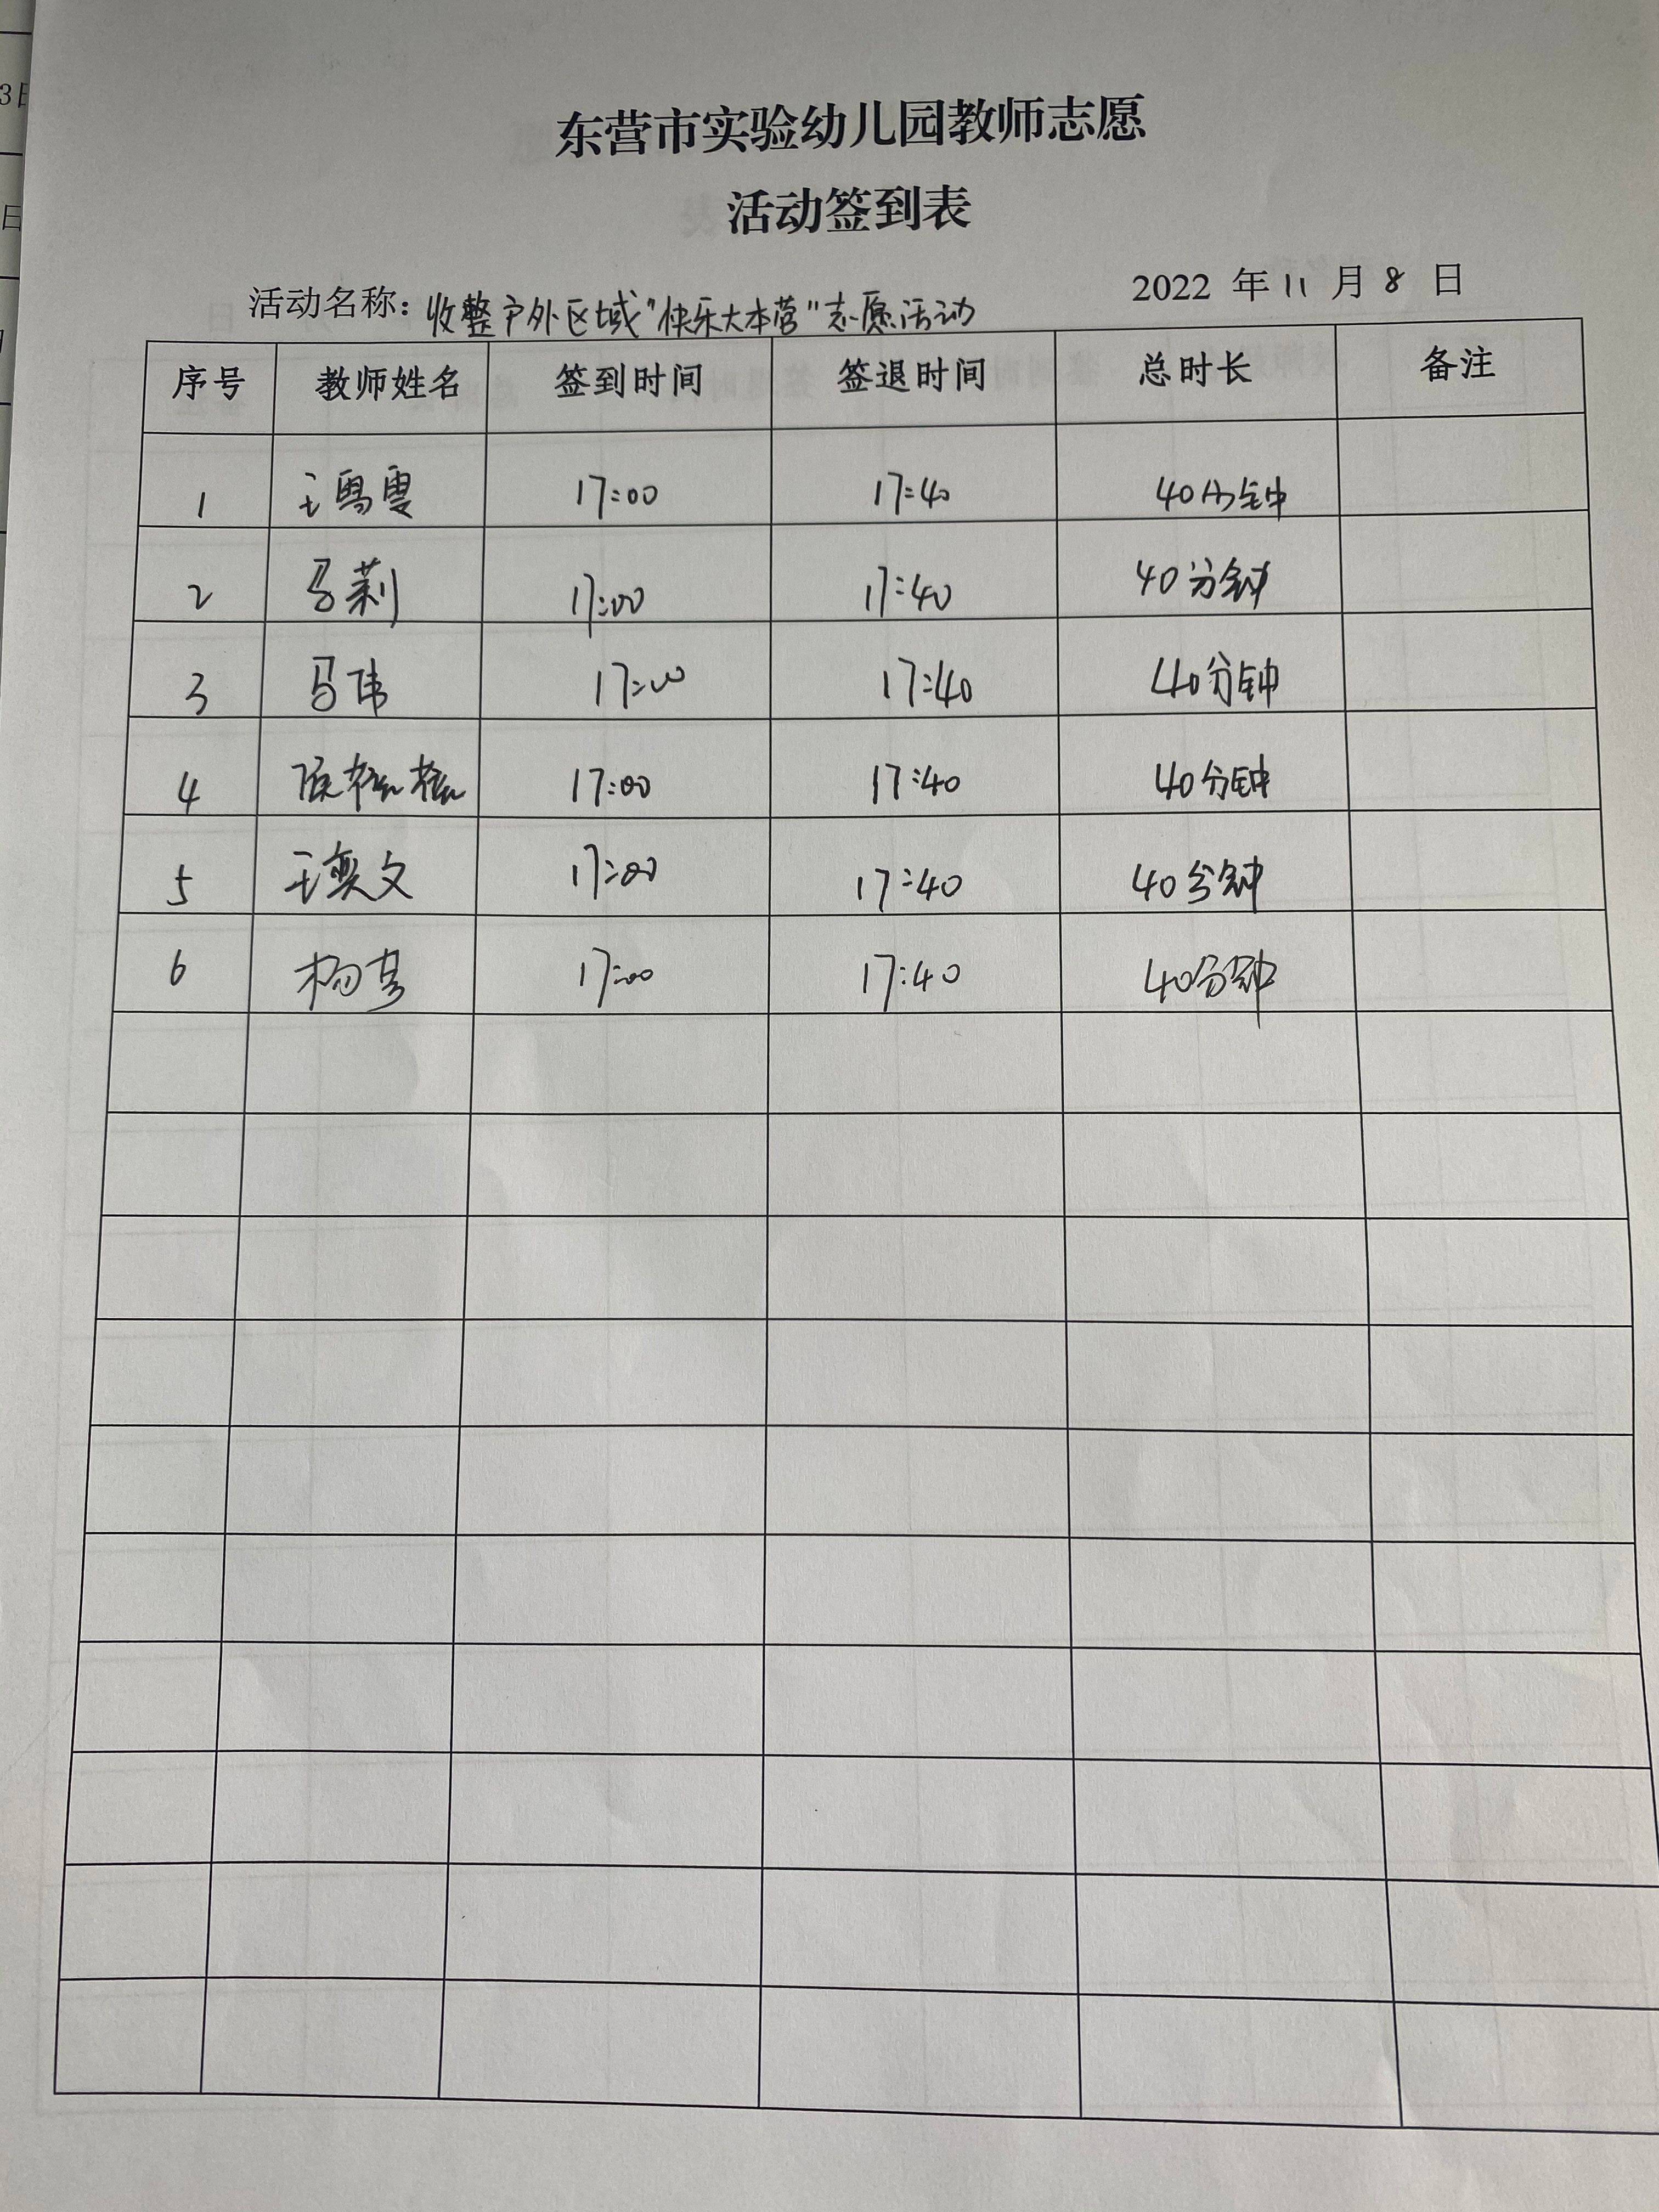 东营市实验幼儿园教师志愿
活动签到表
活动名称：收整户外区域"快乐大本营"志愿活动 2022 年 11 月 8 日
序号 教师姓名 签到时间 签退时间 总时长 备注
1 王雪雯 17:00 17:40 40分钟
2 马莉 17:00 17:40 40分钟
3 马伟 17:00 17:40 40分钟
4 17:00 17:40 40分钟
5 王奕文 17:00 17:40 40分钟
6 17:00 17:40 40分钟